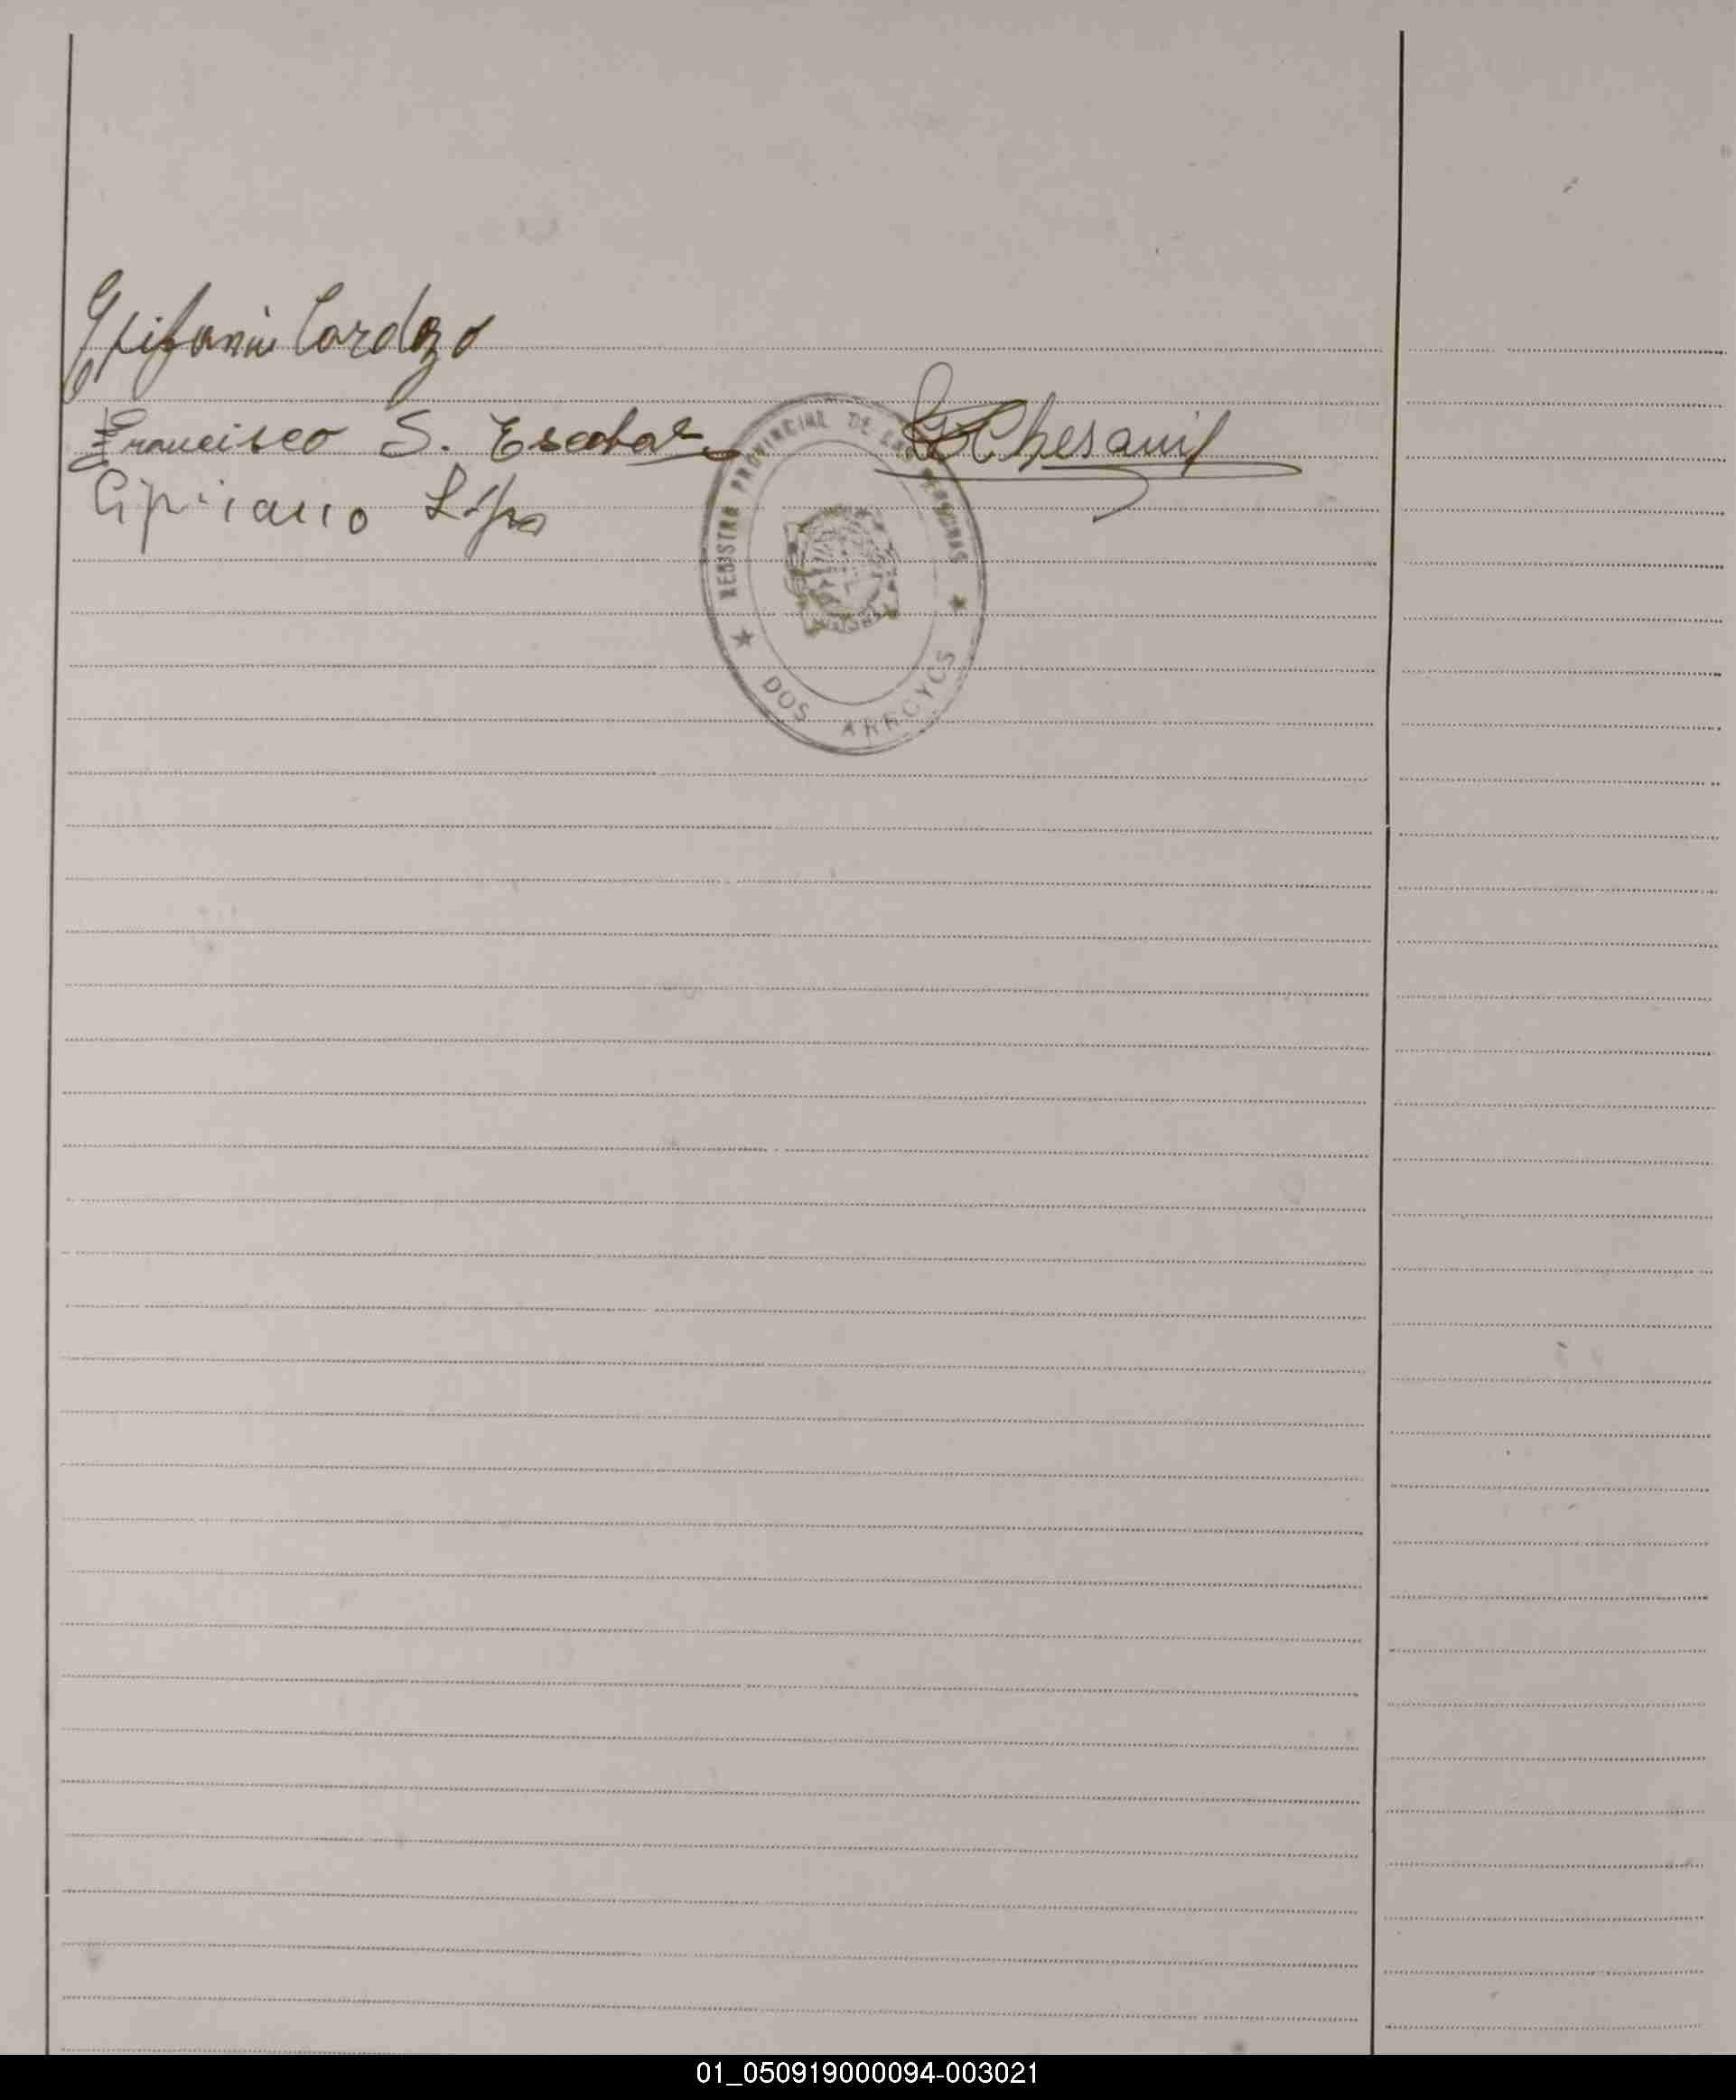 Epifania Cardozo
Francisco S. Escobar
Cipriano
REGISTRO PROVINCIAL DE LAS PERSONAS
DOS ARROYOS
01_050919000094-003021